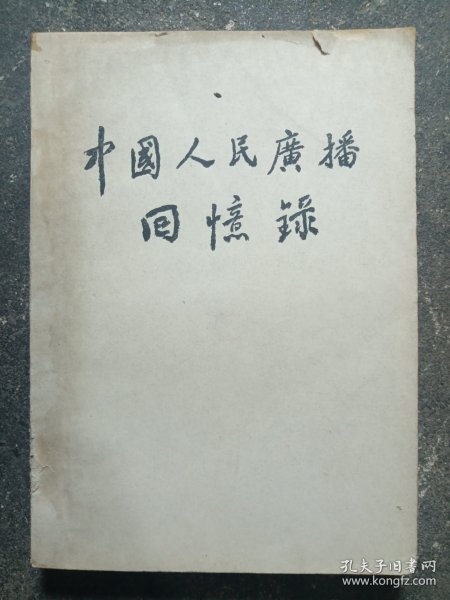 中國人民廣播
回憶錄
孔夫子旧书网
www.kongfz.com